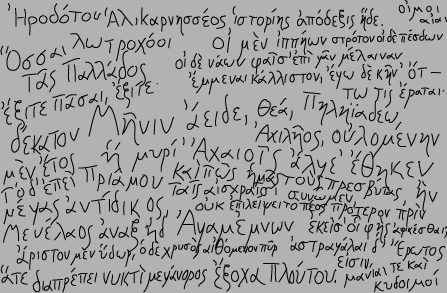 Ἡροδότου Ἁλικαρνησσέος ἱστορίης ἀπόδεξις ἥδε.
οἴμοι
αἰαι
ὅσσαι λωτροχόοι
τᾶς Παλλάδος
ἔξιτε πᾶσαι, ἔξιτε·
οἰ μὲν ἰππήων στρότον οἰ δὲ πέσδων
οἰ δὲ νάων φαῖσ' ἐπὶ γᾶν μέλαιναν
ἔμμεναι κάλλιστον, ἔγω δὲ κῆν' ὄτ-
τω τις ἔραται·
Μῆνιν ἄειδε, θεά, Πηληϊάδεω
Ἀχιλῆος, οὐλομένην
ἣ μυρί' Ἀχαιοῖς ἄλγε' ἔθηκεν
δέκατον
μὲν ἔτος
τόδ' ἐπεὶ Πριάμου
μέγας ἀντίδικος,
Μενέλαος ἄναξ ἠδ' Ἀγαμέμνων
καίπως ἡμᾶς τοὺς πρεσβύτας ἦν
ταῖς αἰσχραῖσι
συνώμεν,
οὐκ ἐπιλείψει τὸ πέος πρότερον πρὶν
ἐκεῖσ' οἷ φὴς ἀφικέσθαι;
ἄριστον μὲν ὕδωρ, ὁ δὲ χρυσὸς αἰθόμενον πῦρ
ἅτε διαπρέπει νυκτὶ μεγάνορος ἔξοχα πλούτου.
ἀστραγάλαι δ' Ἔρωτος
εἰσιν,
μανίαι τε καὶ
κυδοιμοί